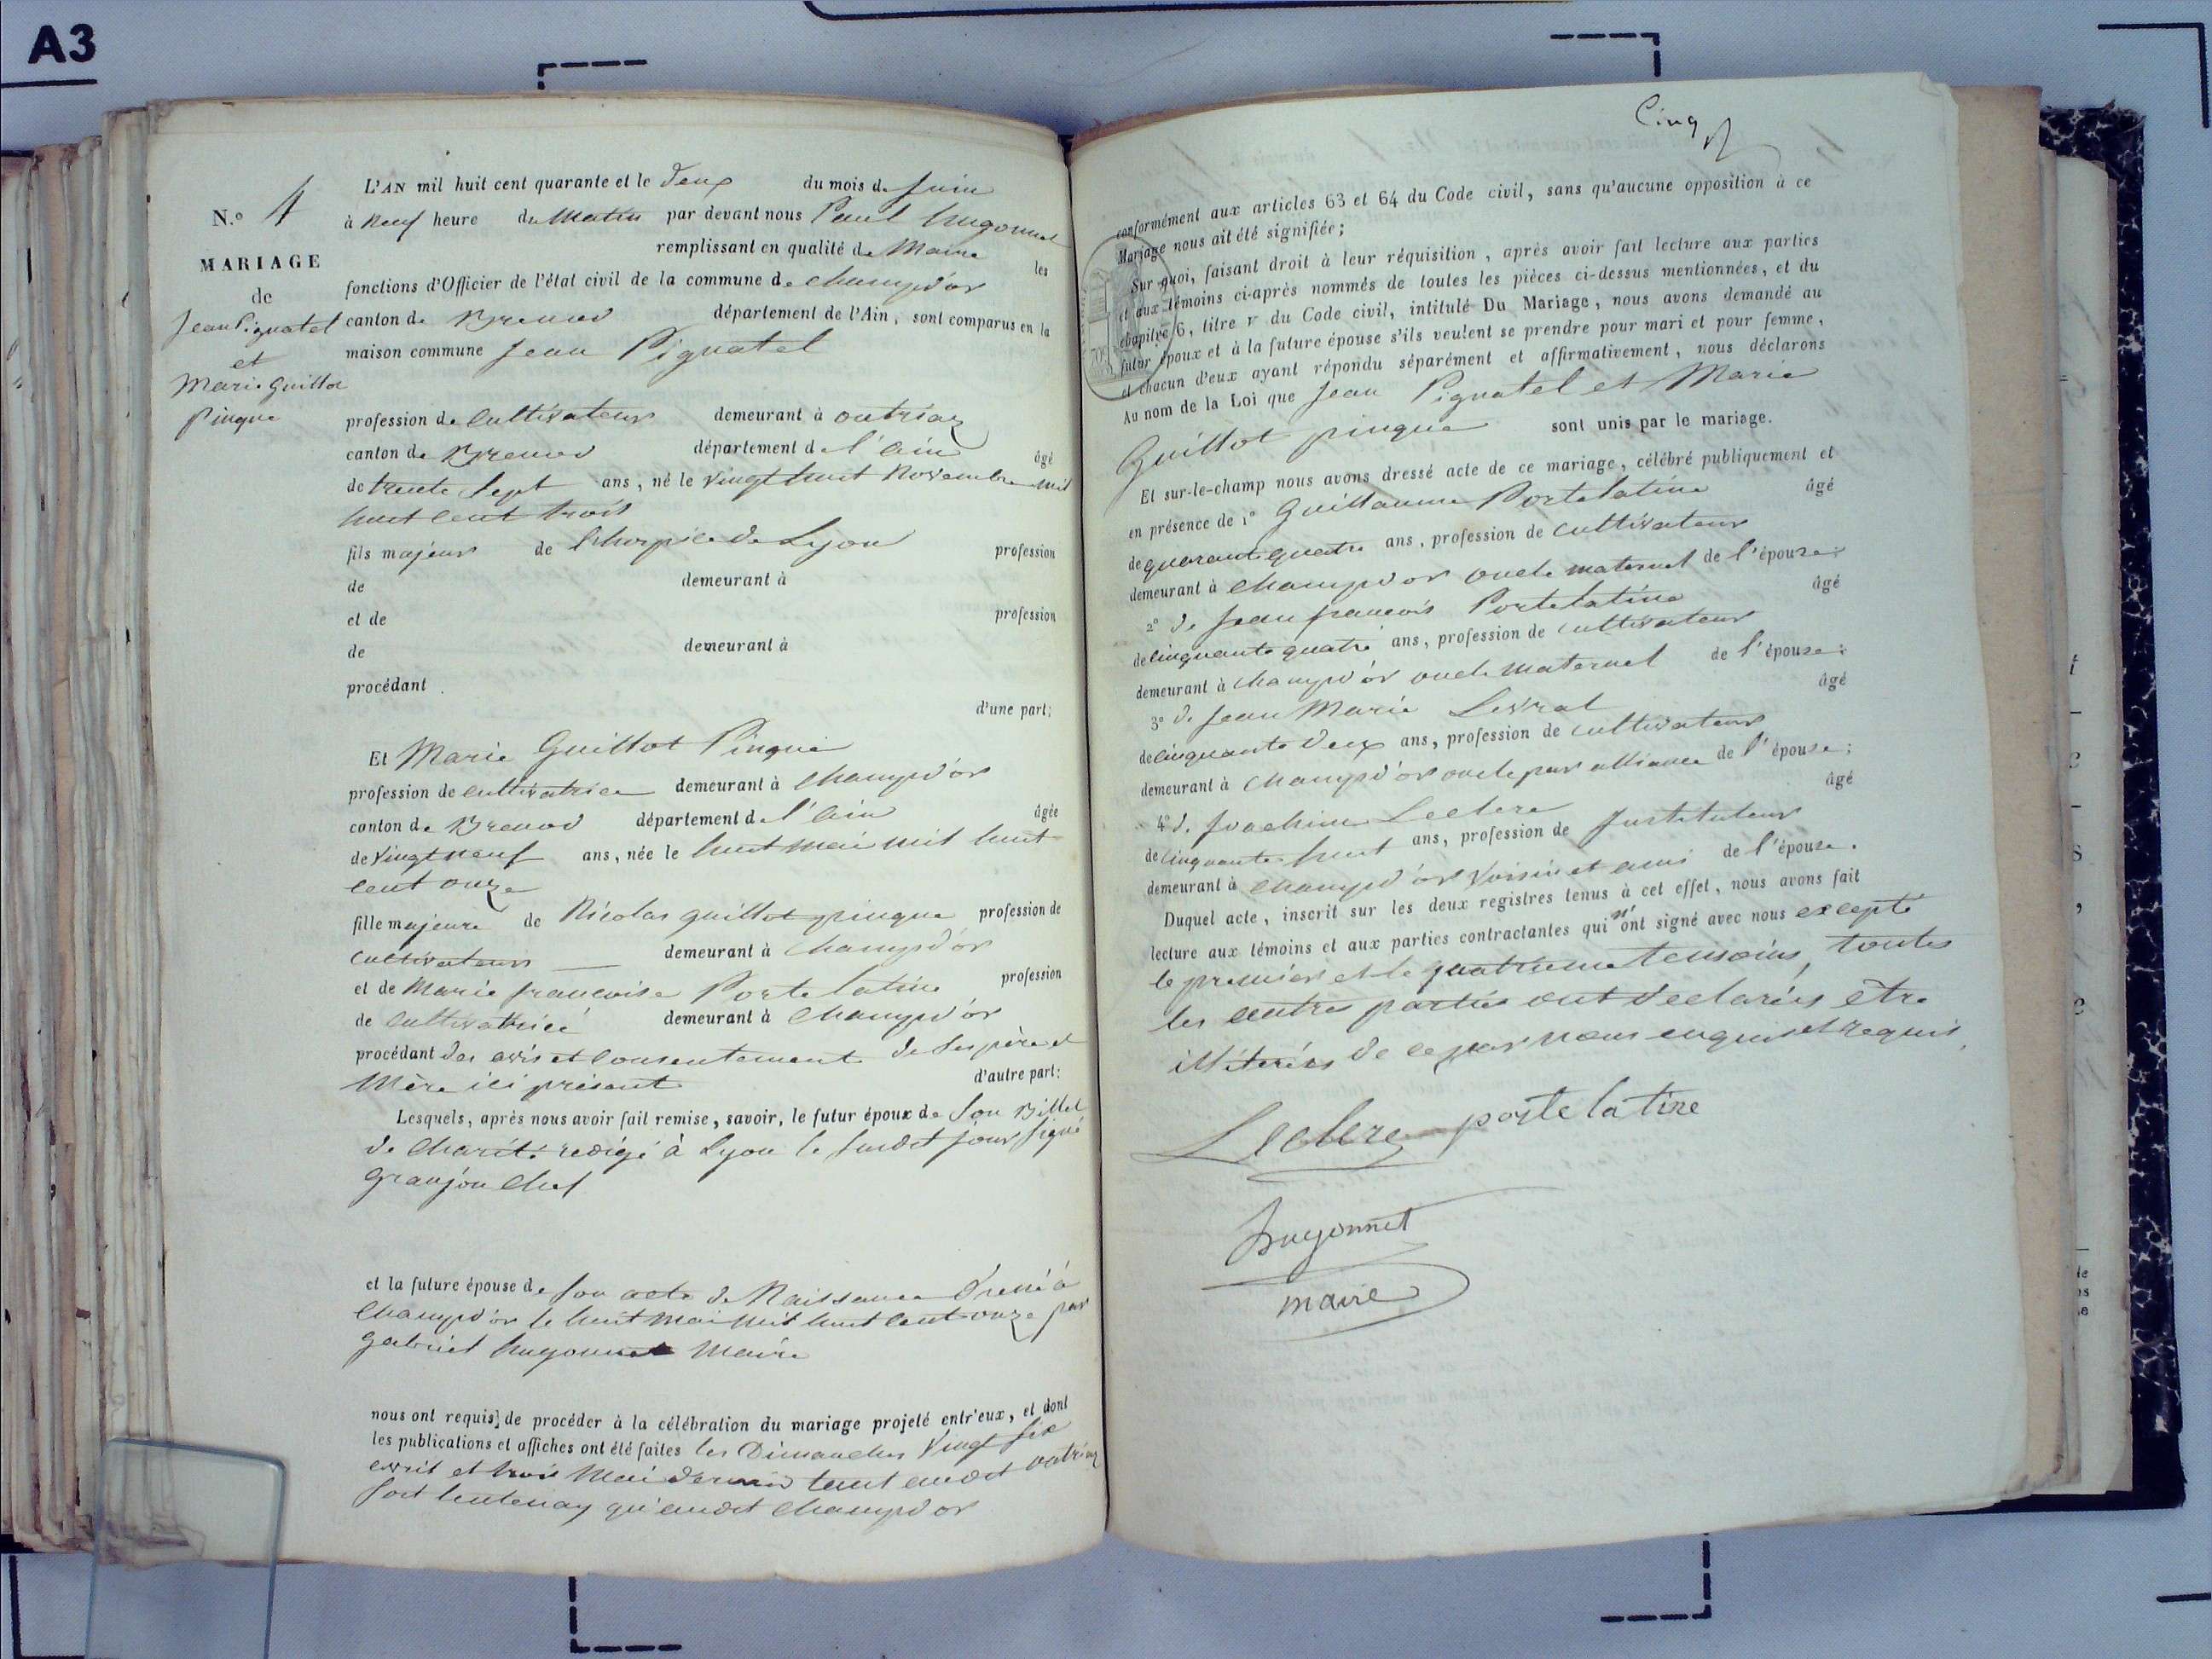 A3
N.º 4
MARIAGE
de
Jean Pignatel
et
Marie Guillot
pingue
L'AN mil huit cent quarante et le deux du mois de Juin
à neuf heure du Matin par devant nous Paul hugonnet
remplissant en qualité de Maire les
fonctions d'Officier de l'état civil de la commune de Champd'or
canton de Brenod département de l'Ain, sont comparus en la
maison commune Jean Pignatel
profession de Cultivateur demeurant à outriaz
canton de Brenod département de l'ain âgé
de trente Sept ans, né le vingt huit Novembre mil
huit cent trois
fils majeur de l'hospice de Lyon profession
de demeurant à
et de profession
de demeurant à
procédant
d'une part;
Et Marie Guillot Pingue
profession de cultivatrice demeurant à Champd'or
canton de Brenod département de l'ain âgée
de vingt neuf ans, née le huit mai mil huit
cent onze
fille majeure de Nicolas guillot pingue profession de
Cultivateur demeurant à Champd'or
et de Marie francoise Porte latine profession
de Cultivatrice demeurant à Champd'or
procédant des avis et Consentement de Ses père et
Mère ici présent d'autre part:
Lesquels, après nous avoir fait remise, savoir, le futur époux de Son Billet
de Charité redigé à Lyon le Susdit jour Signé
Granjon Chef
et la future épouse de Son acte de Naissance dressé à
Champd'or le huit Mai mil huit Cent onze par
Gabriel hugonnet Maire
nous ont requis de procéder à la célébration du mariage projeté entr'eux, et dont
les publications et affiches ont été faites les Dimanches Vingt Six
avril et trois Mai dernier tant audit outriaz
Sort lentenay qu'audit Champd'or
Cinq
conformément aux articles 63 et 64 du Code civil, sans qu'aucune opposition à ce
Mariage nous ait été signifiée;
Sur quoi, faisant droit à leur réquisition, après avoir fait lecture aux parties
et aux témoins ci-après nommés de toutes les pièces ci-dessus mentionnées, et du
chapitre 6, titre v du Code civil, intitulé Du Mariage, nous avons demandé au
futur époux et à la future épouse s'ils veulent se prendre pour mari et pour femme,
et chacun d'eux ayant répondu séparément et affirmativement, nous déclarons
Au nom de la Loi que Jean Pignatel et Marie
Guillot pingue sont unis par le mariage.
Et sur-le-champ nous avons dressé acte de ce mariage, célébré publiquement et
en présence de 1º Guillaume Portelatine âgé
de quarante quatre ans, profession de cultivateur
demeurant à Champd'or oncle maternel de l'épouse;
2º de Jean francois Portelatine âgé
de cinquante quatre ans, profession de cultivateur
demeurant à Champd'or oncle maternel de l'épouse;
3º de Jean Marie Levrat âgé
de cinquante deux ans, profession de cultivateur
demeurant à Champd'or oncle par alliance de l'épouse;
4º de Joachim Leclerc âgé
de cinquante huit ans, profession de Instituteur
demeurant à Champd'or Voisin et ami de l'épouse.
Duquel acte, inscrit sur les deux registres tenus à cet effet, nous avons fait
lecture aux témoins et aux parties contractantes qui n'ont signé avec nous excepté
le premier et le quatrieme temoins, toutes
les autres parties ont declarées être
illiterées de ce par nous enquis et requis.
Leclerc portelatine
hugonnet
maire